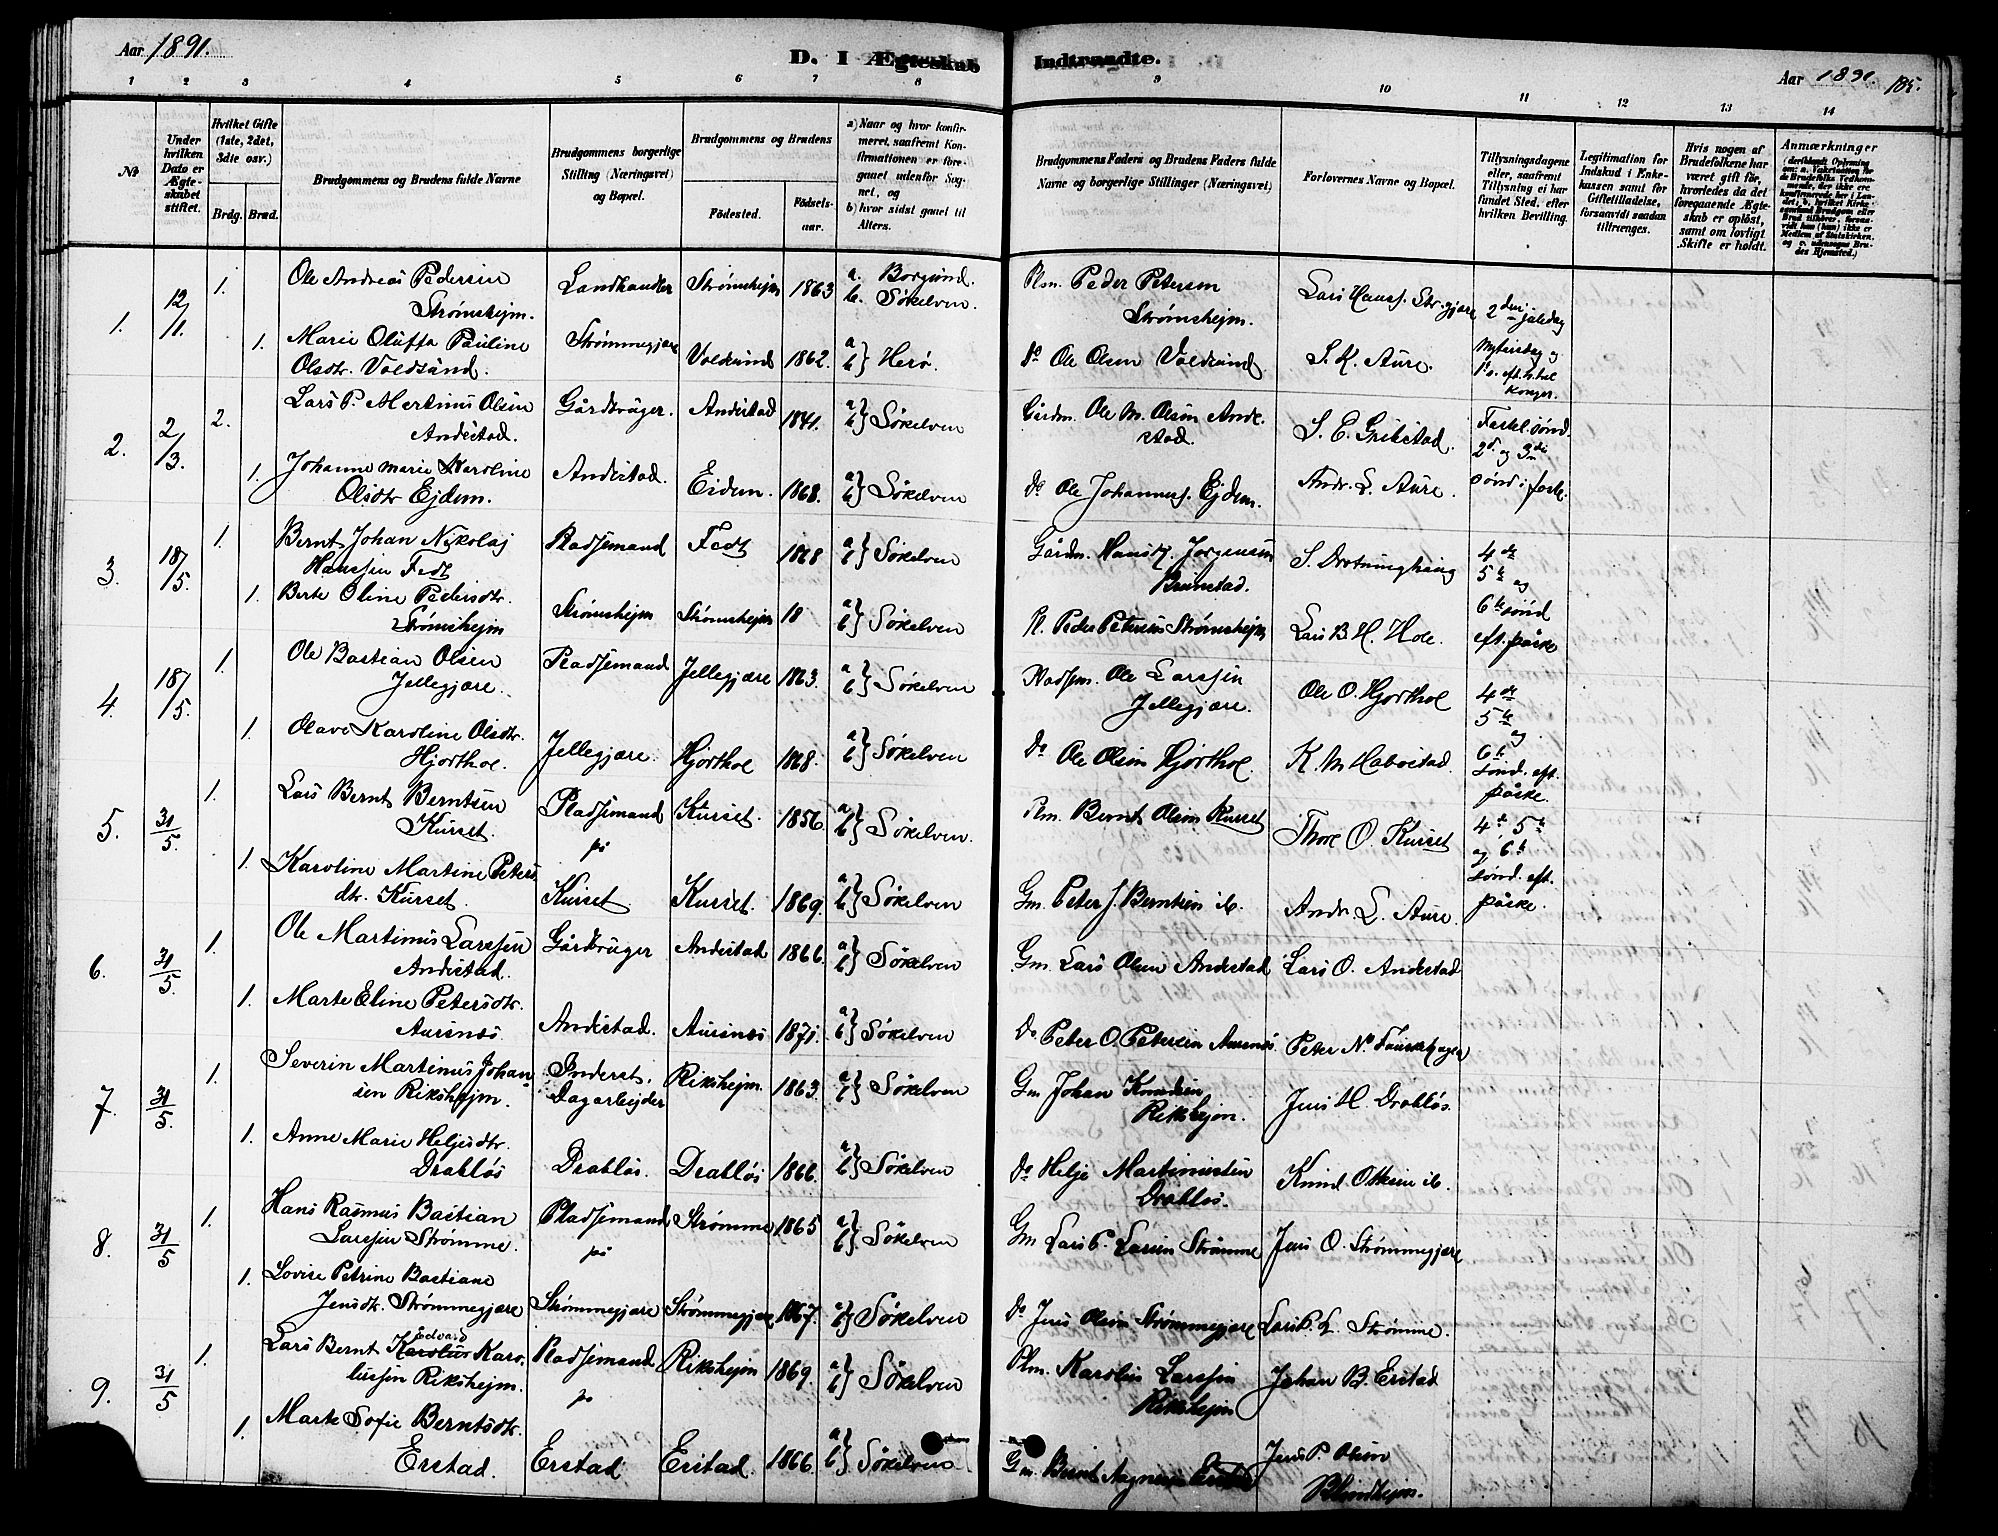 Aar 1891.
D. I Ægteskab Indtraadte.
Aar 1891.
185.
1 2 3 4 5 6 7 8 9 10 11 12 13 14
№
Under hvilken Dato er Ægteskabet stiftet.
Hvilket Gifte (1ste, 2det, 3dte osv.)
Brdg. Brud.
Brudgommens og Brudens fulde Navne
Brudgommens borgerlige Stilling (Næringsvei) og Bopæl.
Brudgommens og Brudens
Fødested.
Fødselsaar.
a) Naar og hvor konfirmeret, saafremt Konfirmationen er foregaaet udenfor Sognet, og
b) hvor sidst gaaet til Alters.
Brudgommens Faders og Brudens Faders fulde Navne og borgerlige Stillinger (Næringsvei)
Forlovernes Navne og Bopæl.
Tillysningsdagene eller, saafremt Tillysning ei har fundet Sted, efter hvilken Bevilling.
Legitimation for Indskud i Enkekassen samt for Giftetilladelse, forsaavidt saadan tiltrænges.
Hvis nogen af Brudefolkene har været gift før, hvorledes da det foregaaende Ægteskab er opløst, samt om lovligt Skifte er holdt.
Anmærkninger
1. 12/1. 1. Ole Andreas Pedersen Strømshejm. Landhandler Strømshejm 1863 a. Borgund. b. Søkelven. Plm. Peder Petersen Strømshejm. Lars Hanss. Str.gjære 2den juledag
1. Marie Oluffa Pauline Olsdtr. Voldsund. Strømmegjære Voldsund 1862. a b} Herø. Do Ole Olsen Voldsund S. K. Aure. Nytårsdag og 1s. eft. h. tre konger.
2. 2/3. 2. Lars P. Martinus Olsen Andestad. Gårdbruger. Andestad 1841. a b} Søkelven Gårdm. Ole M. Olsen Andestad. S. E. Grebstad. Fastel. sønd. 2d. og 3die
1. Johanne Marie Karoline Olsdtr Ejdem. Andestad. Eidem. 1868. a b} Søkelven Do Ole Johanness. Ejdem. Andr. L. Aure. sønd i faste.
3. 18/5. 1. Bernt Johan Nikolaj Hanssen Fedt Pladsemand Fedt 1868 a b} Søkelven Gårdm. Hans J. Jørgensen Brunstad. S. Drotninghaug 4de 5te og
1. Berte Oline Pedersdtr. Strømshejm Strømshejm Strømshejm 18 a b} Søkelven P. Peder Petersen Strømshejm Lars B. H. Hole. 6te sønd eft. påske
4. 18/5. 1. Ole Bastian Olsen Jellegjære. Pladsemand Jellegjære 1863. a b} Søkelven Pladsm. Ole Larssen Jellegjære. Ole O. Hjorthol 4de 5te og
1. Olave Karoline Olsdtr. Hjorthol. Jellegjære. Hjorthol 1868. a b} Søkelven Do Ole Olsen Hjorthol. K. M Habostad. 6te sønd. eft. påske.
5. 31/5. 1. Lars Bernt Berntsen Kurset. Pladsemand på Kurset. 1856. a b} Søkelven. Plm. Bernt Olsen Kurset Thore O. Kurset 4te 5te og 6te
1. Karoline Martine Petersdtr. Kurset. Kurset Kurset. 1869. a b} Søkelven Gm. Peter J. Berntsen ib. Andr. L. Aure. sønd. eft. påske.
6. 31/5. 1. Ole Martinus Larssen Andestad. Gårdbruger Andestad 1866. a b} Søkelven Gm. Lars Olsen Andestad Lars O. Andestad
1. Marte Eline Petersdtr. Aursnes Andestad. Aursnes 1871. a b} Søkelven Do Peter O. Petersen Aursnes. Peter N.
7. 31/5. 1. Severin Martinus Johansen Rikshejm. Inderst. Dagarbejder Rikshejm. 1863. a b} Søkelven Gm Johan Knudsen Rikshejm. Jens H. Drabløs.
1. Anne Marie Heljesdtr. Drabløs Drabløs. Drabløs 1866. a b} Søkelven Do Helje Martinussen Drabløs. Knud Ottesen ib.
8. 31/5 1. Hans Rasmus Bastian Larssen Strømme. Pladsemand på Strømme 1865 a b. Søkelven Gm Lars P. Larsen Strømme Jens O. Strømmegjære
1. Lovise Petrine Bastiane Jensdtr. Strømmegjære Strømmegjære Strømmegjære 1867. a b} Søkelven Do Jens Olsen Strømmegjære Lars P. L. Strømme.
9. 31/5 1. Lars Bernt Karolus Edvard Karolussen Rikshejm. Pladsemand på Rikshejm 1869. a b} Søkelven Plm. Karolus Larssen Rikshejm Johan B. Erstad
1. Marte Sofie Berntsdtr. Erstad. Erstad Erstad. 1866. a b} Søkelven Gm. Bernt Erstad Jens P. Olsen Blindhejm.